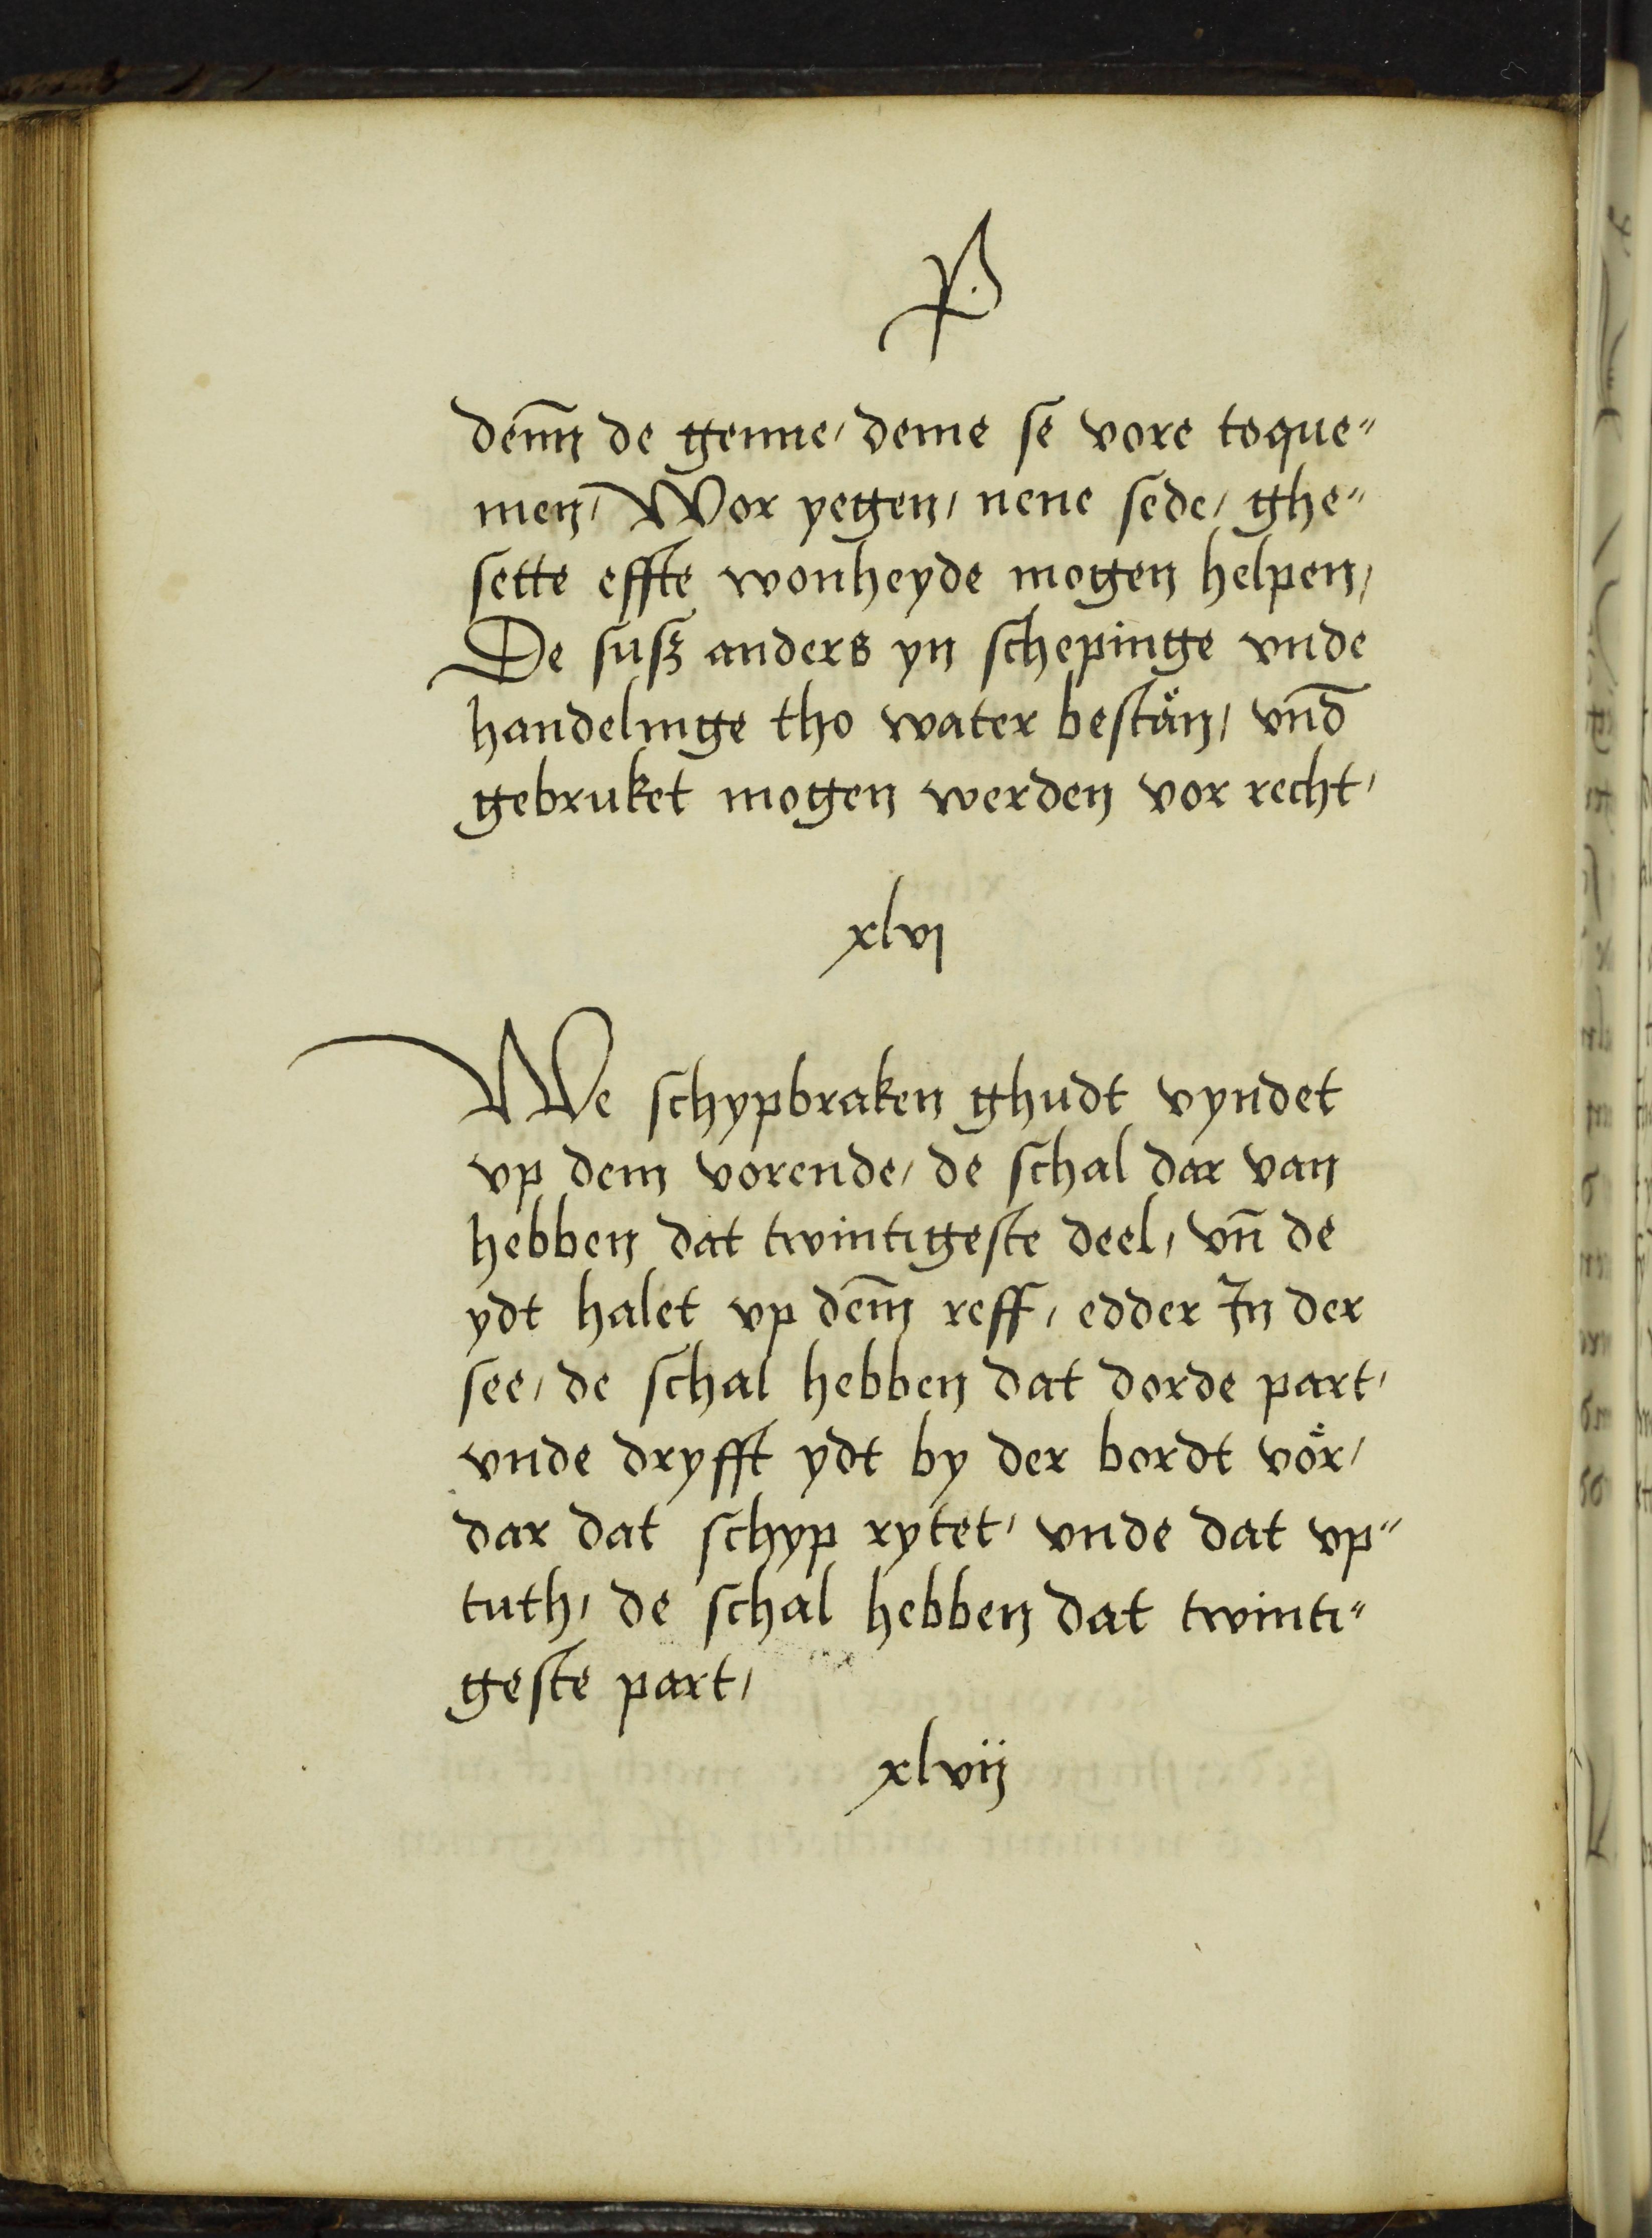 deñn de genne/ deme se vore toque"
men/ Wor yegen/ nene sede/ ghe"
sette effte wonheyde mogen helpen/
De susz anders yn schepinge vnde
handelinge tho water bestaͤn/ vnd̄
gebruket mogen werden vor recht/
xlvj
We schypbraken ghudt vyndet
vp dem vorende/ de schal dar van
hebben dat twintigeste deel/ vñ de
ydt halet vp dem̄ reff/ edder In der
see/ de schal hebben dat dorde part/
vnde dryfft ydt by der bordt voͤr/
dar dat schyp rytet/ vnde dat vp"
tuth/ de schal hebben dat twinti"
geste part/
xlvij